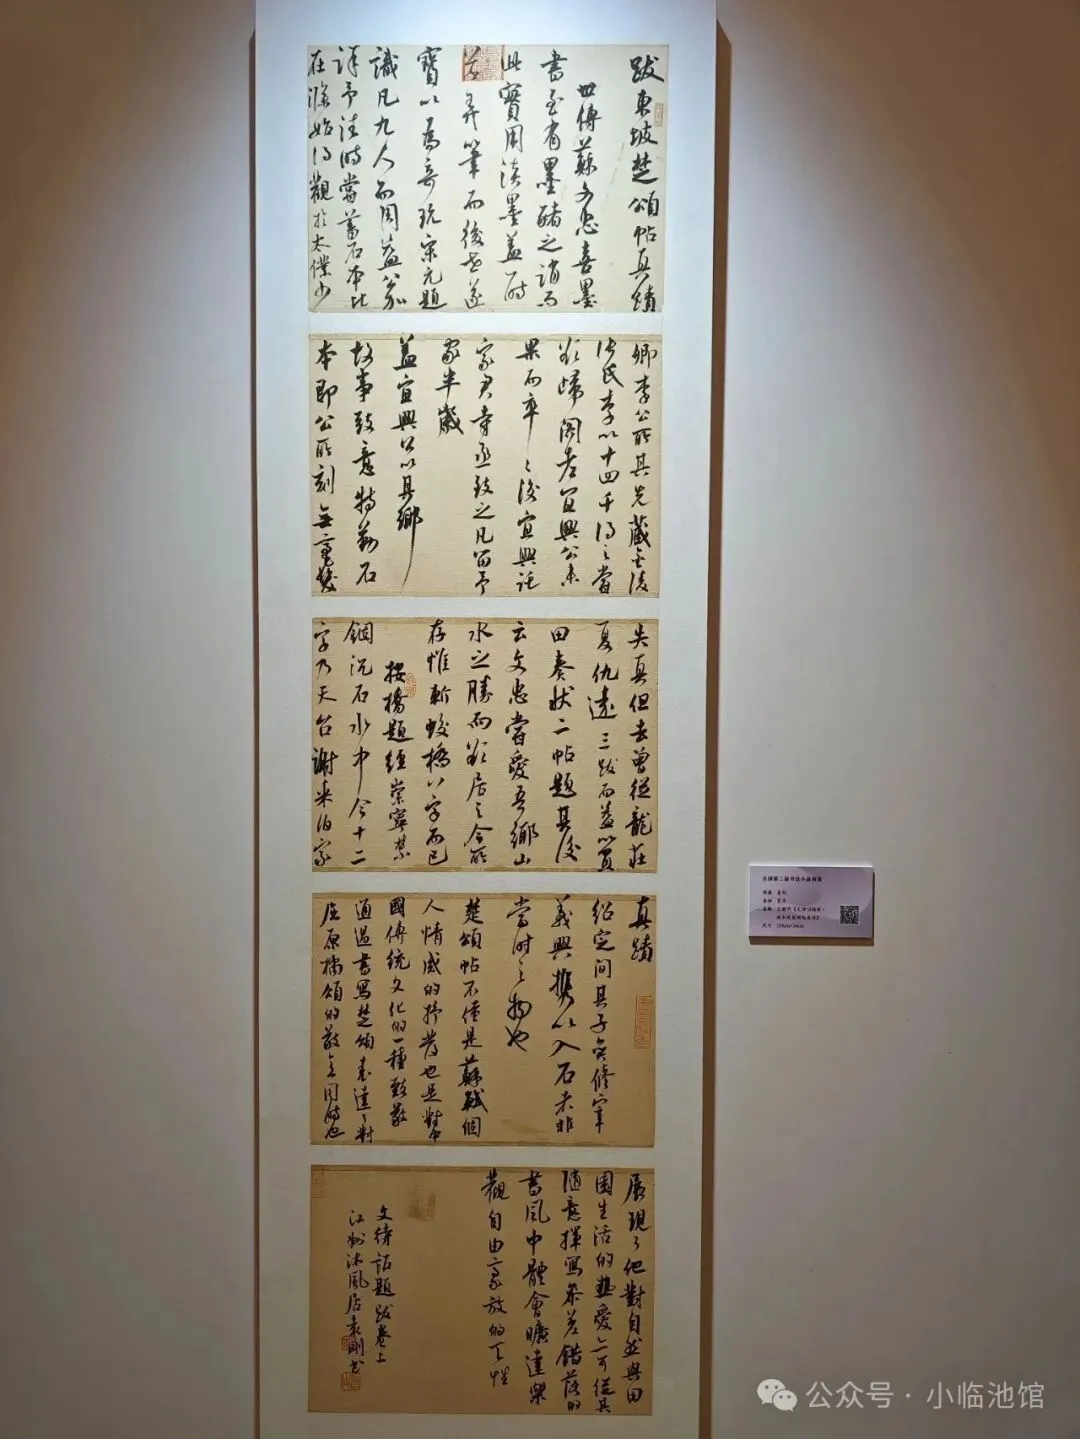 跋東坡楚頌帖真蹟
世傳蘇文忠喜墨
書至有墨豬之誚而
此實用淡墨蓋一時
弄筆而後世遂
寶以為奇玩宋元題
識凡九人而周益公加
詳予往時嘗蓄石本比
在滁始得觀於太僕少
卿李公所其先藏金陵
張氏李以十四千得之嘗
欲歸閣老宜興公未
果而卒後宜興託
家君寺丞致之凡留予
家半歲
益宜興公以其鄉
故事致意特勤石
本即公所刻無毫髮
失真但去曾從龍莊
夏仇遠三跋而益以買
田奏狀二帖題其後
云文忠嘗愛吾鄉山
水之勝而欲居之今所
存惟斬蛟橋八字而已
按橋題經崇寧禁
錮沉石水中今十二
字乃天台謝采伯家
真蹟
紹定間其子奕修宰
義興攜以入石未非
當時之物也
楚頌帖不僅是蘇軾個
人情感的抒發也是對中
國傳統文化的一種致敬
通過書寫楚頌表達了對
屈原橘頌的敬意同時也
展現了他對自然與田
園生活的熱愛亦可從其
隨意揮寫參差錯落的
書風中體會曠達樂
觀自由豪放的天性
文待詔題跋卷上
江州沐風居袁剛書
公众号 · 小临池馆